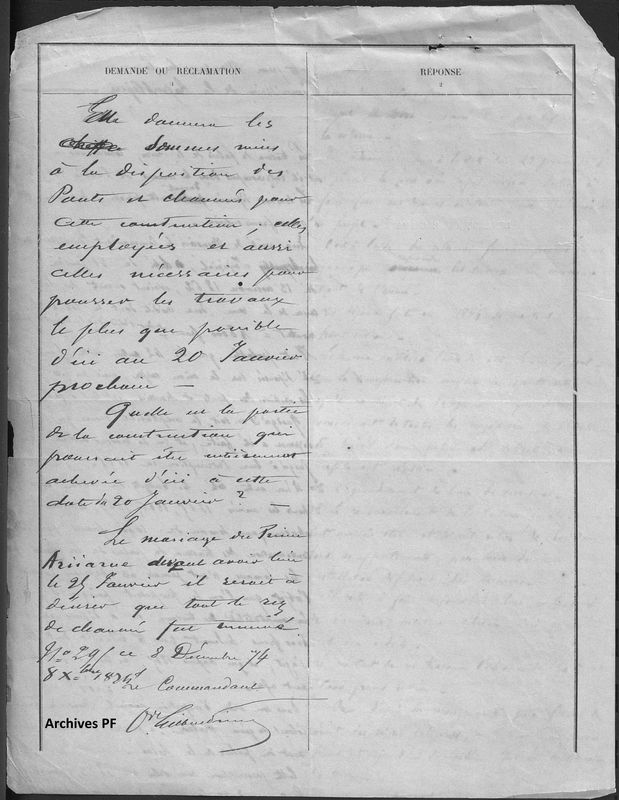 DEMANDE OU RÉCLAMATION
1
RÉPONSE
2
Elle donnera les
chiffre sommes mises
à la disposition des
Ponts et chaussées pour
cette construction, celles
employées et aussi
celles nécessaires pour
pousser les travaux
le plus que possible
d'ici au 20 Janvier
prochain —
Quelle est la partie
de la construction qui
pourrait être entièrement
achevée d'ici à cette
date du 20 Janvier ? —
Le mariage du Prince
Ariiaue devant avoir lieu
le 25 Janvier il serait à
désirer que tout le rez
de chaussée fut terminé.
ce 8 Décembre 74
8 Xbre 1874
Le Commandant
Archives PF